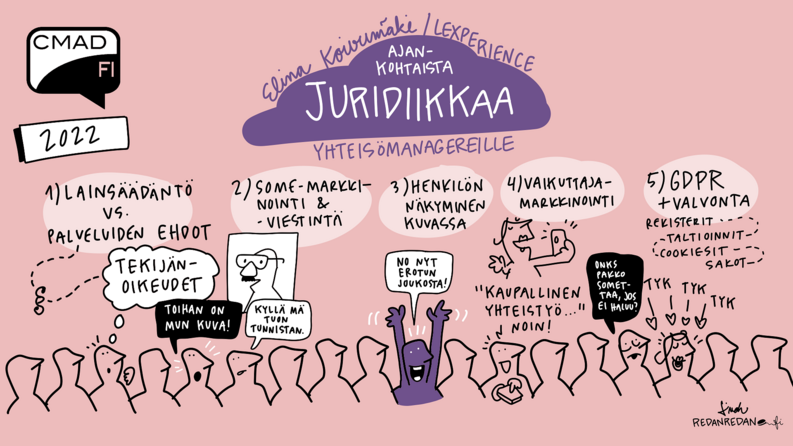 CMAD
FI
2022
Elina Koivumäki / LEXPERIENCE
AJAN-
KOHTAISTA
JURIDIIKKAA
YHTEISÖMANAGEREILLE
1) LAINSÄÄDÄNTÖ
VS.
PALVELUIDEN EHDOT
§
TEKIJÄN-
OIKEUDET
TOIHAN ON
MUN KUVA!
2) SOME-MARKKI-
NOINTI &
-VIESTINTÄ
KYLLÄ MÄ
TUON
TUNNISTAN.
3) HENKILÖN
NÄKYMINEN
KUVASSA
NO NYT
EROTUN
JOUKOSTA!
4) VAIKUTTAJA-
MARKKINOINTI
"KAUPALLINEN
YHTEISTYÖ..."
NOIN!
5) GDPR
+ VALVONTA
REKISTERIT
TALTIOINNIT
COOKIESIT
SAKOT
ONKS
PAKKO
SOMET-
TAA, JOS
EI HALUU?
TYK
TYK
TYK
REDANREDAN.fi